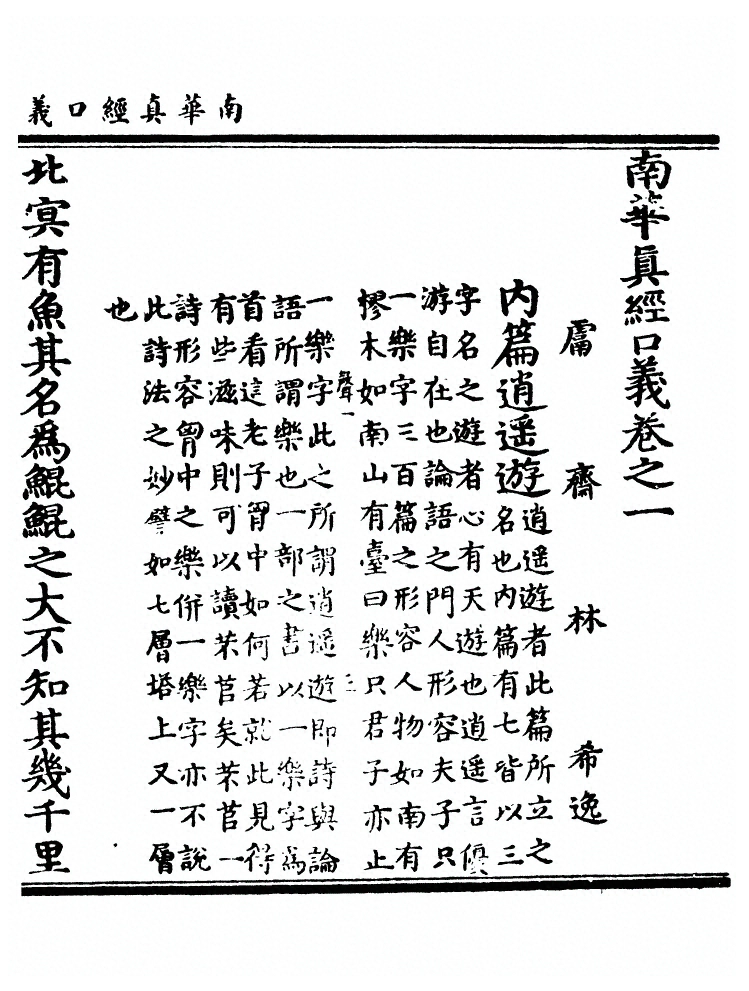 南華真經口義
南華眞經口義卷之一
鬳齋林希逸
内篇逍遥遊逍遥遊者此篇所立之
名也内篇有七皆以三
字名之遊者心有天遊也逍遥言優
游自在也論語之門人形容夫子只
一樂字三百篇之形容人物如南有
樛木如南山有臺曰樂只君子亦止
聲一 三
一樂字此之所謂逍遥遊即詩與論
語所謂樂也一部之書以一樂字爲
首看這老子胷中如何若就此見得
有些滋味則可以讀芣苢矣芣苢一
詩形容胷中之樂併一樂字亦不說
此詩法之妙譬如七層塔上又一層
也
北㝠有魚其名爲鯤鯤之大不知其幾千里